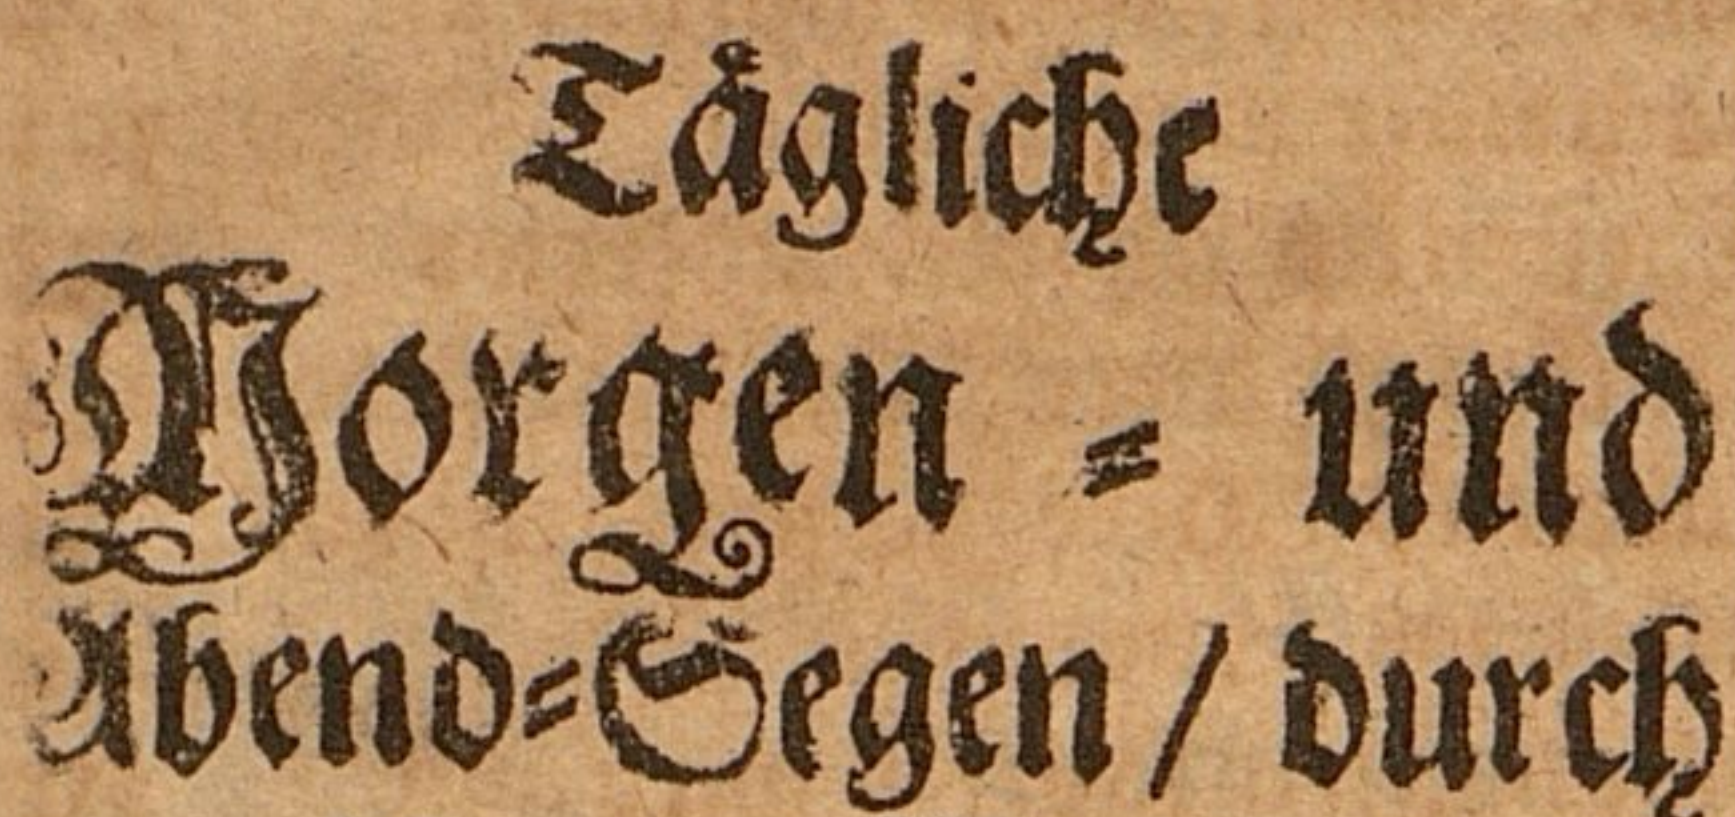 Taͤgliche
Morgen = und
Abend=Segen / durch